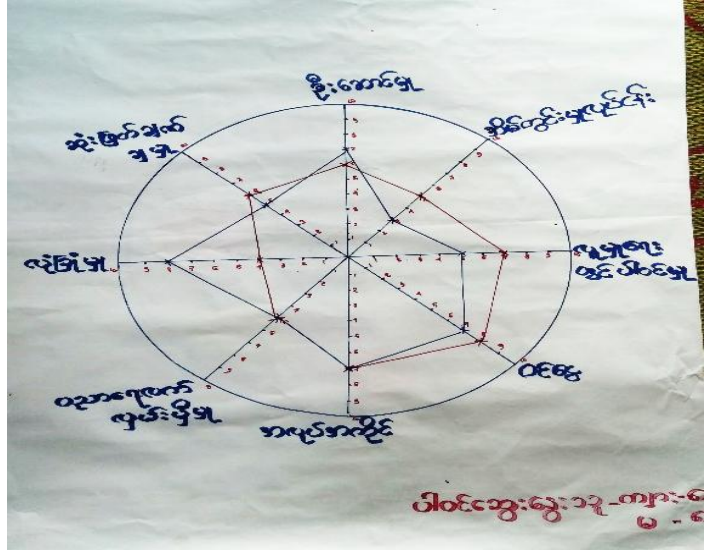 ဦးဆောင်မှု
အိမ်တွင်းမှုလုပ်ငန်း
လူမှုရေး
တွင်ပါဝင်မှု
ဝင်ငွေ
အလုပ်အကိုင်
ပညာရေလက်
လှမ်းမှီမှု
လုံခြုံမှု
ဆုံးဖြတ်ချက်
ချမှု
ပါဝင်ဆွေးနွေးသူ-ကျား-
မ -